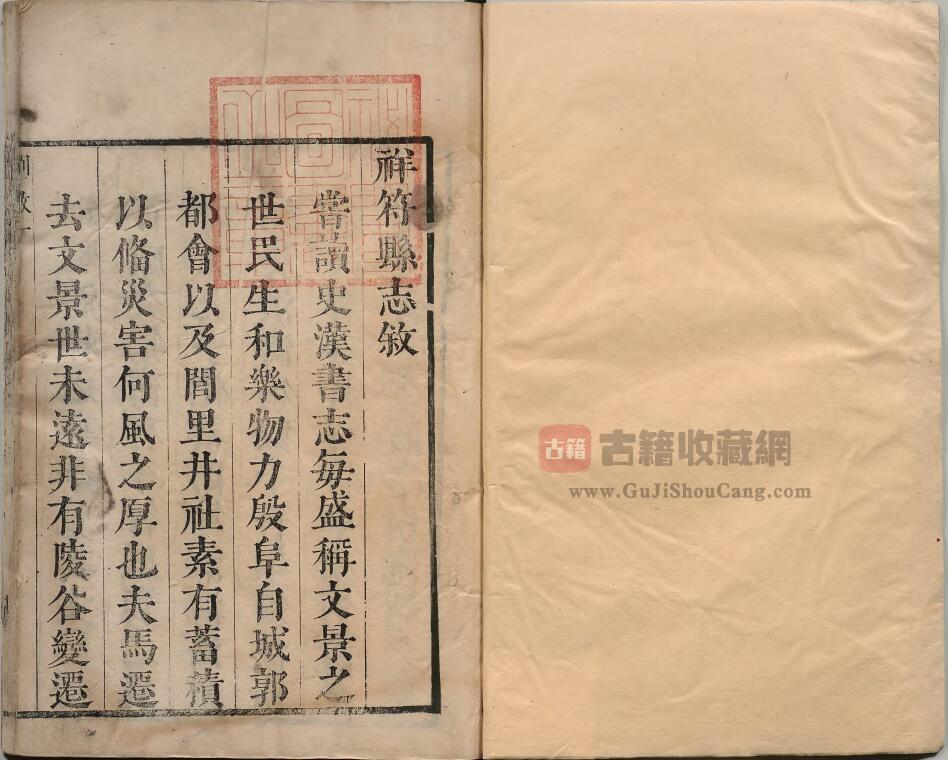 祥符縣志敘
嘗讀史漢書志每盛稱文景之
世民生和樂物力殷阜自城郭
都會以及閭里井社素有蓄積
以偹災害何風之厚也夫馬遷
去文景世未遠非有陵谷變遷
古籍
古籍收藏網
www.GuJiShouCang.com